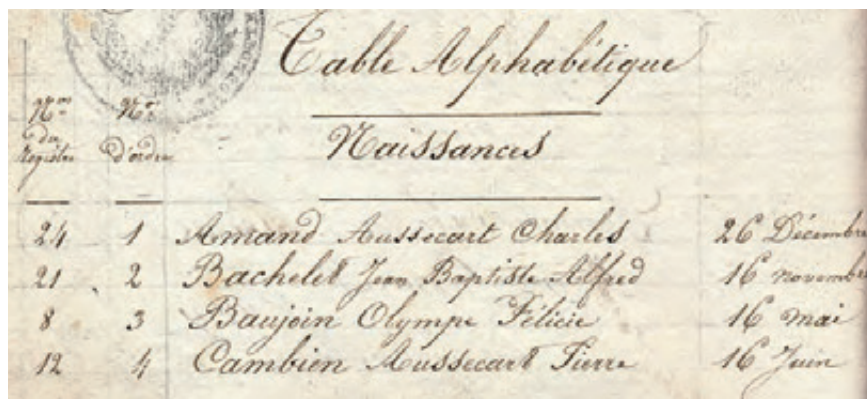 Table Alphabétique
Nos du Registre
Nos d'ordre
Naissances
24 1 Amand Aussecart Charles 26 Décembre
21 2 Bachelet Jean Baptiste Alfred 16 novembre
8 3 Baujoin Olympe Félicie 16 mai
12 4 Cambien Aussecart Pierre 16 Juin